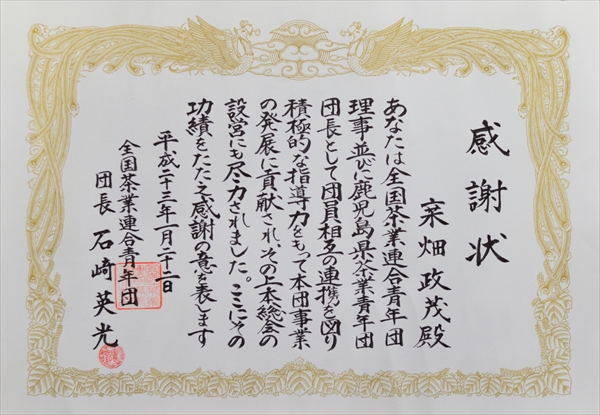 感謝状
桒畑政茂殿
あなたは全国茶業連合青年団
理事並びに鹿児島県茶業青年団
団長として団員相互の連携を図り
積極的な指導力をもって本団事業
の発展に貢献され、その上本総会の
設営にも尽力されました。ここにその
功績をたたえ感謝の意を表します
平成二十三年一月二十二日
全国茶業連合青年団
団長 石崎英光